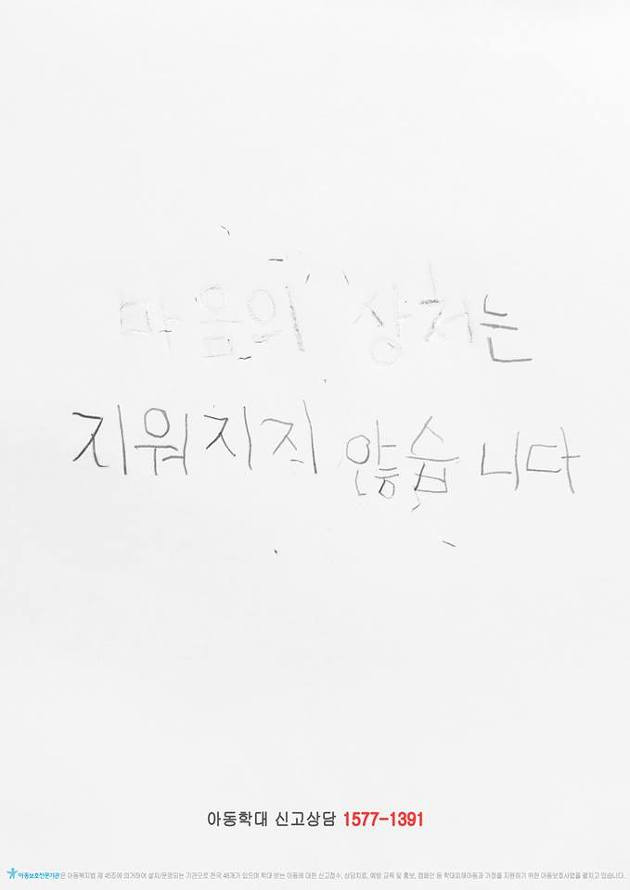 마음의 상처는
지워지지 않습니다
아동학대 신고상담 1577-1391
아동보호전문기관은 아동복지법 제 45조에 의거하여 설치/운영되는 기관으로 전국 46개가 있으며 학대 받는 아동에 대한 신고접수, 상담치료, 예방 교육 및 홍보, 캠페인 등 학대피해아동과 가정을 지원하기 위한 아동보호사업을 펼치고 있습니다.